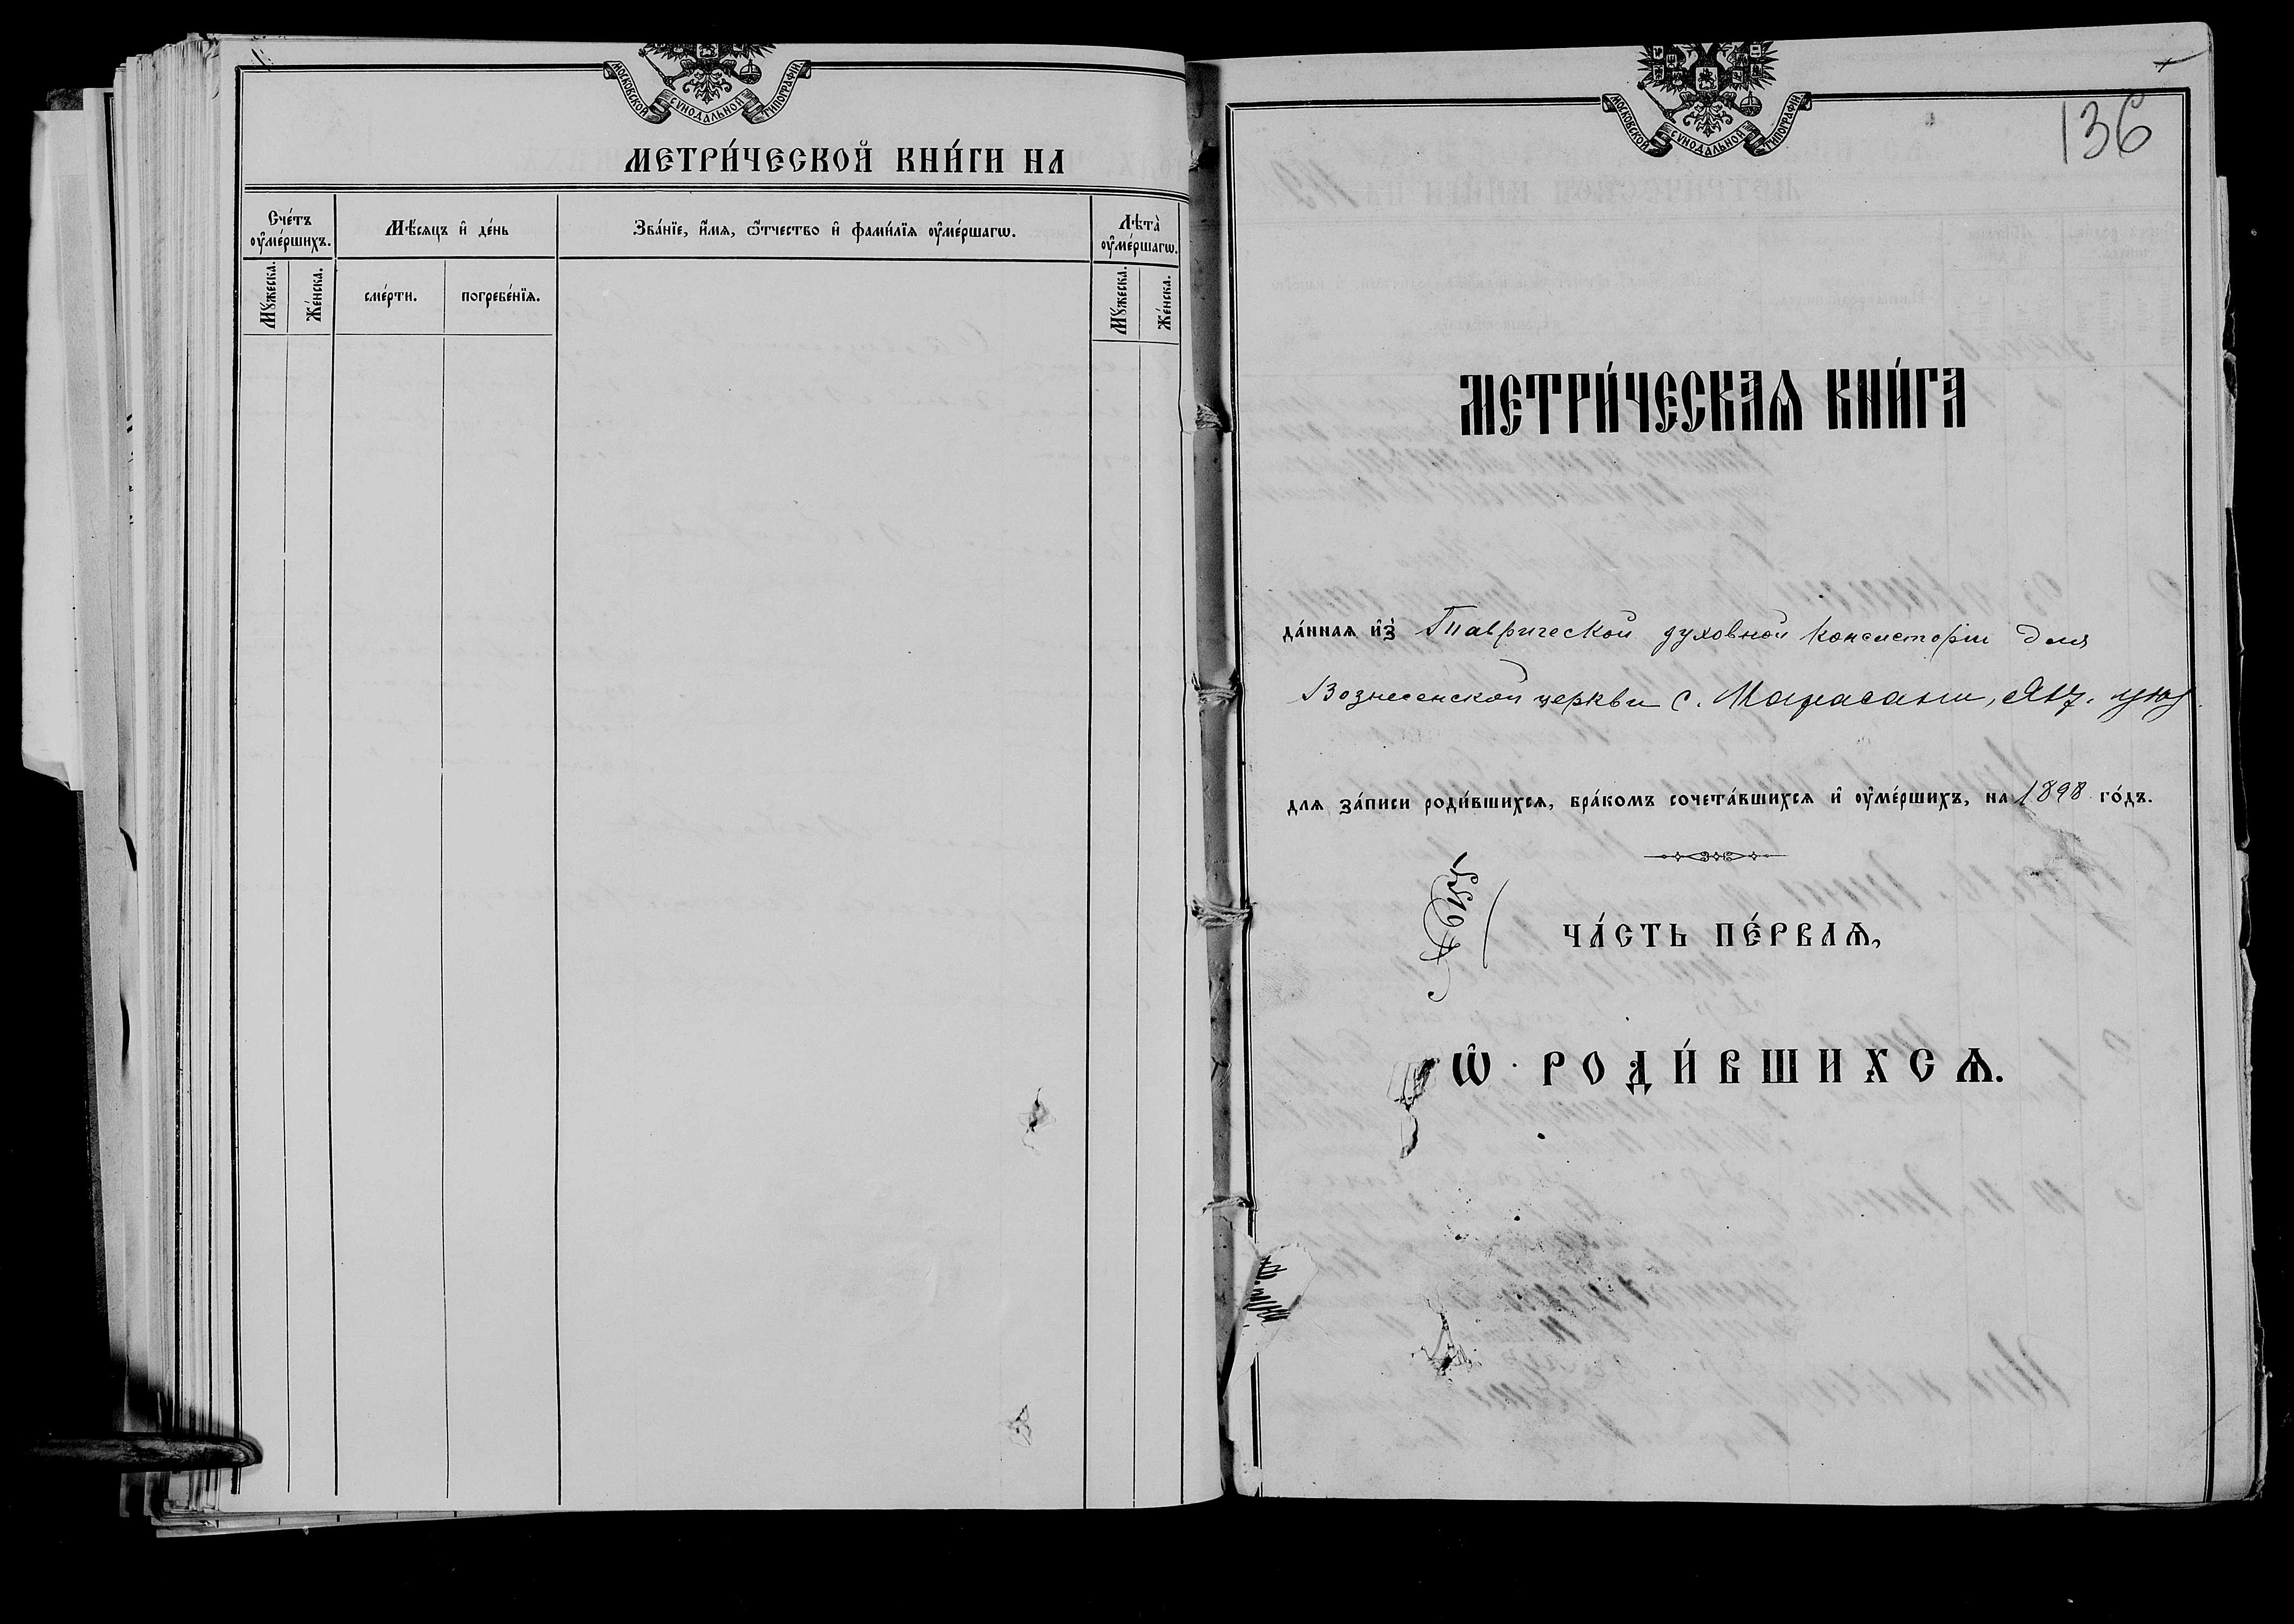 МОСКОВСКОЙ СѴНОДАЛЬНОЙ ТИПОГРАФІИ
МЕТРИ́ЧЕСКОЙ КНИ́ГИ НА
Сче́тъ ᲂу҆ме́ршихъ.
Мѣ́сяцъ и҆ де́нь
Зва́нїе, и҆́мя, ѻ҆́тчество и҆ фами́лїя ᲂу҆ме́ршагѡ.
Лѣта̀ ᲂу҆ме́ршагѡ.
Мꙋ́жеска.
Же́нска.
сме́рти.
погребе́нїя.
Мꙋ́жеска.
Же́нска.
МОСКОВСКОЙ СѴНОДАЛЬНОЙ ТИПОГРАФІИ
136
МЕТРИ́ЧЕСКАѦ КНИ́ГА
да́нная и҆з̾ Таврической духовной Консисторіи для
Вознесенской церкви с. Марасани, Ялт. уѣз.
для за́писи роди́вшихся, бра́комъ сочета́вшихся и҆ ᲂу҆ме́ршихъ, на 1898 го́дъ.
ЧА́СТЬ ПЕ́РВАѦ,
Ѡ҆ РОДИ́ВШИХСѦ.